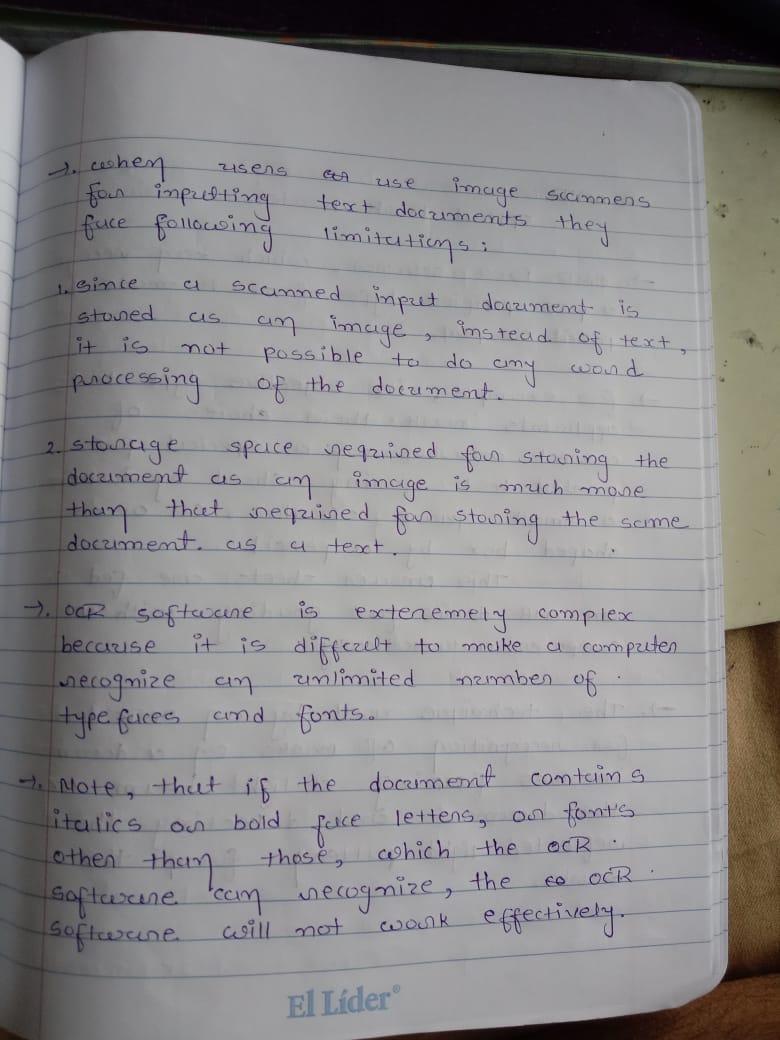 →. when users use image scanners
for inputting text documents they
face following limitations:
1. Since a scanned input document is
stored as an image, instead of text,
it is not possible to do any word
processing of the document.
2. Storage space required for storing the
document as an image is much more
than that required for storing the same
document. as a text.
→. OCR software is exteremely complex
because it is difficult to make a computer
recognize an unlimited number of
typefaces and fonts.
→. Note, that if the document contains
italics or bold face letters, or font's
other than those, which the OCR
software can recognize, the OCR
software will not work effectively.
El Líder®